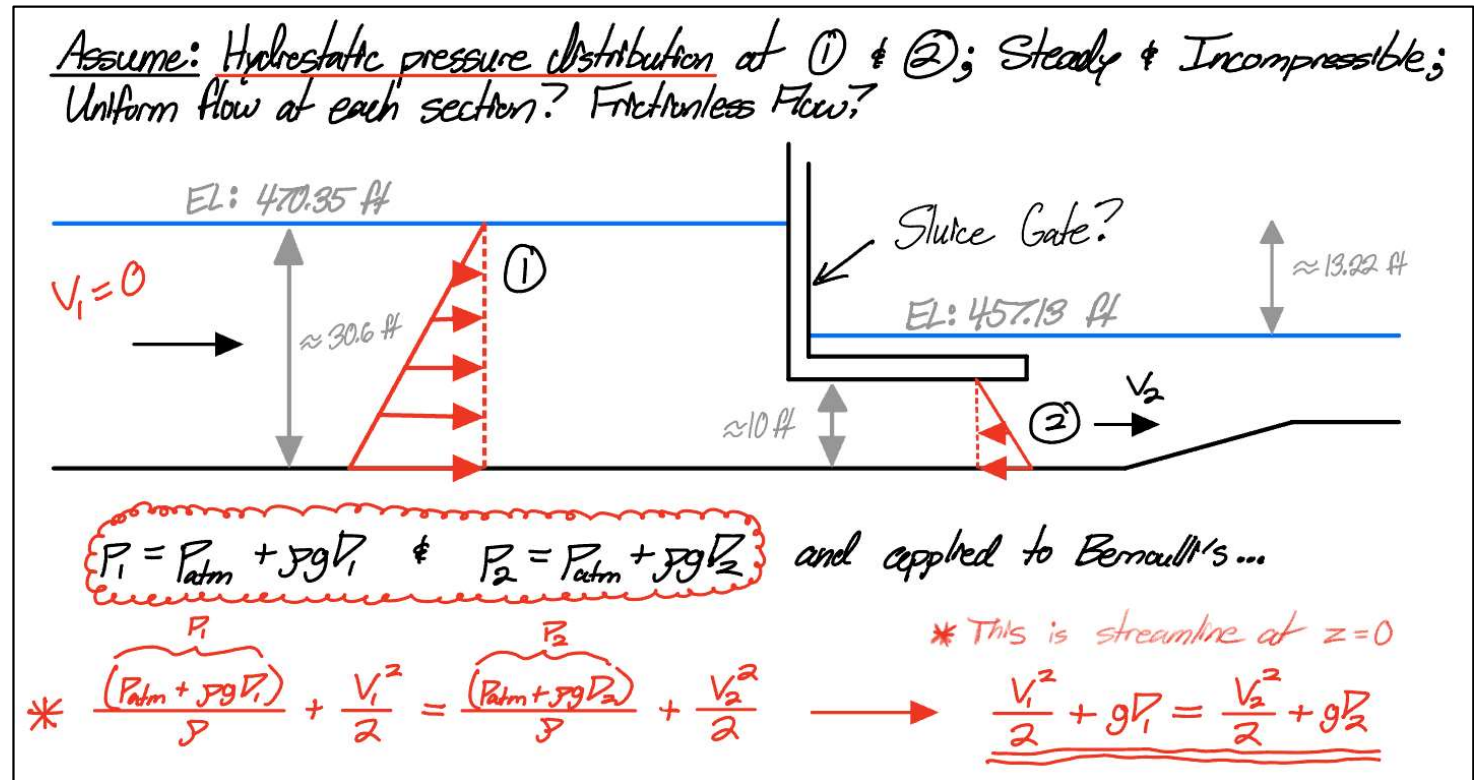 Assume: Hydrostatic pressure distribution at ① & ②; Steady & Incompressible;
Uniform flow at each section? Frictionless Flow?
EL: 470.35 ft
V₁=0
①
≈30.6 ft
Sluice Gate?
≈13.22 ft
EL: 457.13 ft
≈10 ft
②
V₂
P₁ = Patm + ρgD₁ & P₂ = Patm + ρgD₂ and applied to Bernoulli's...
P₁ P₂
* This is streamline at z=0
* (Patm + ρgD₁)/ρ + V₁²/2 = (Patm + ρgD₂)/ρ + V₂²/2 → V₁²/2 + gD₁ = V₂²/2 + gD₂